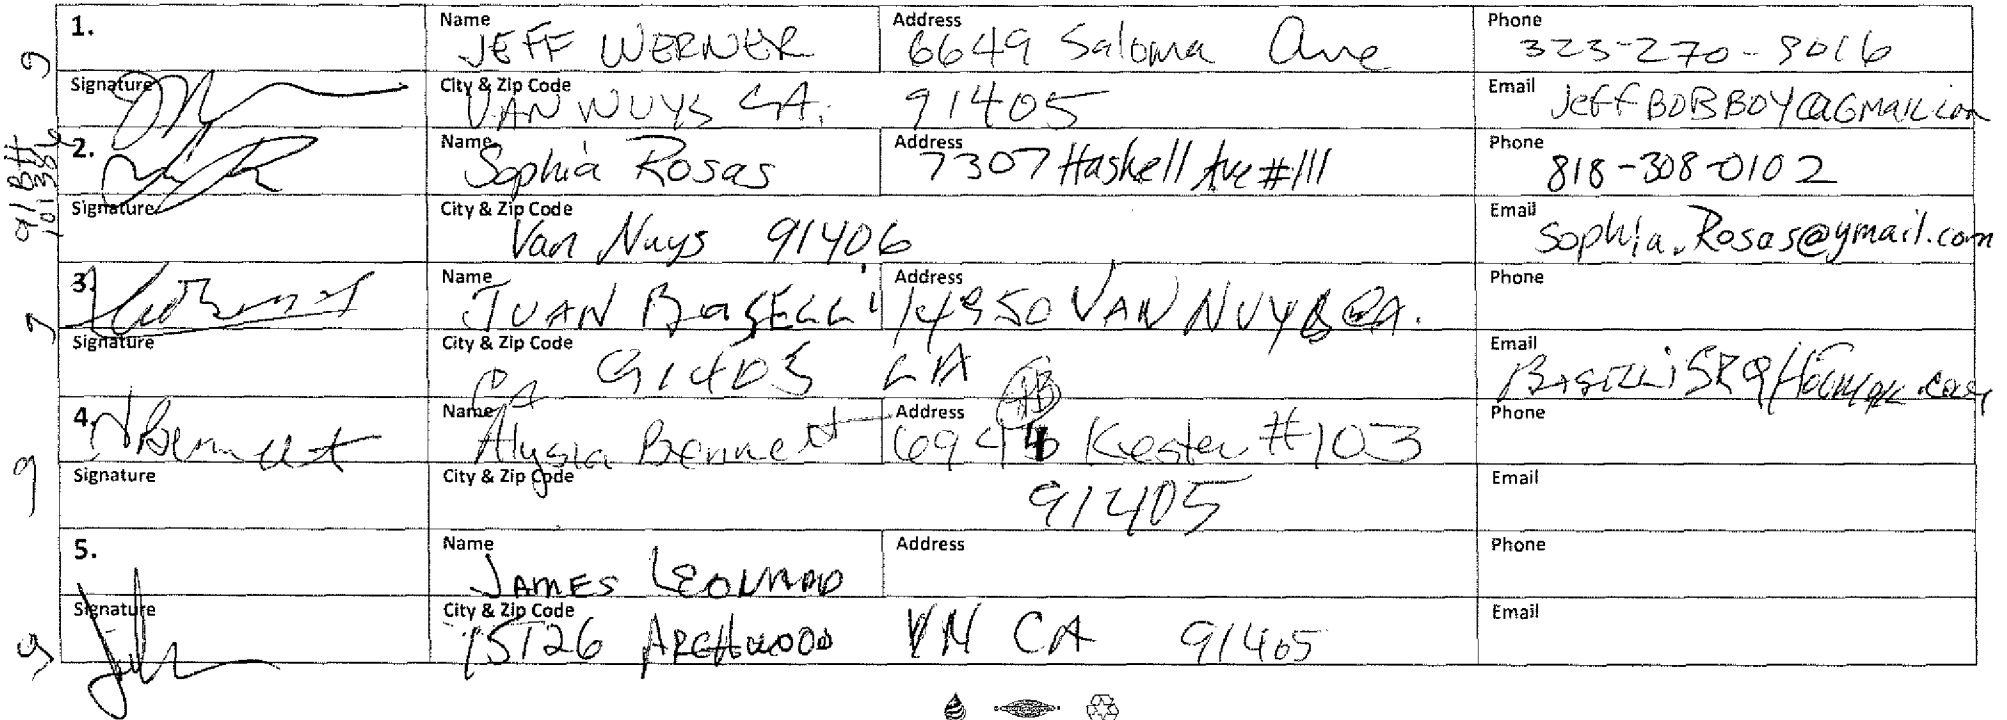 1. Name JEFF WERNER Address 6649 Saloma Ave Phone 323-270-9016
Signature City & Zip Code VAN NUYS CA. 91405 Email JeffBOBBOY@GMAIL.com
2. Name Sophia Rosas Address 7307 Haskell Ave #111 Phone 818-308-0102
Signature City & Zip Code Van Nuys 91406 Email Sophia.Rosas@ymail.com
3. Name JUAN BASELLi Address 14950 VAN NUYS CA. Phone
Signature City & Zip Code CA 91405 LA Email
4. ABennett Name Alysia Bennett Address Kester #103 Phone
AB
Signature City & Zip Code 91405 Email
5. Name JAMES LEONARD Address Phone
Signature City & Zip Code 15126 ARCHWOOD VN CA 91405 Email